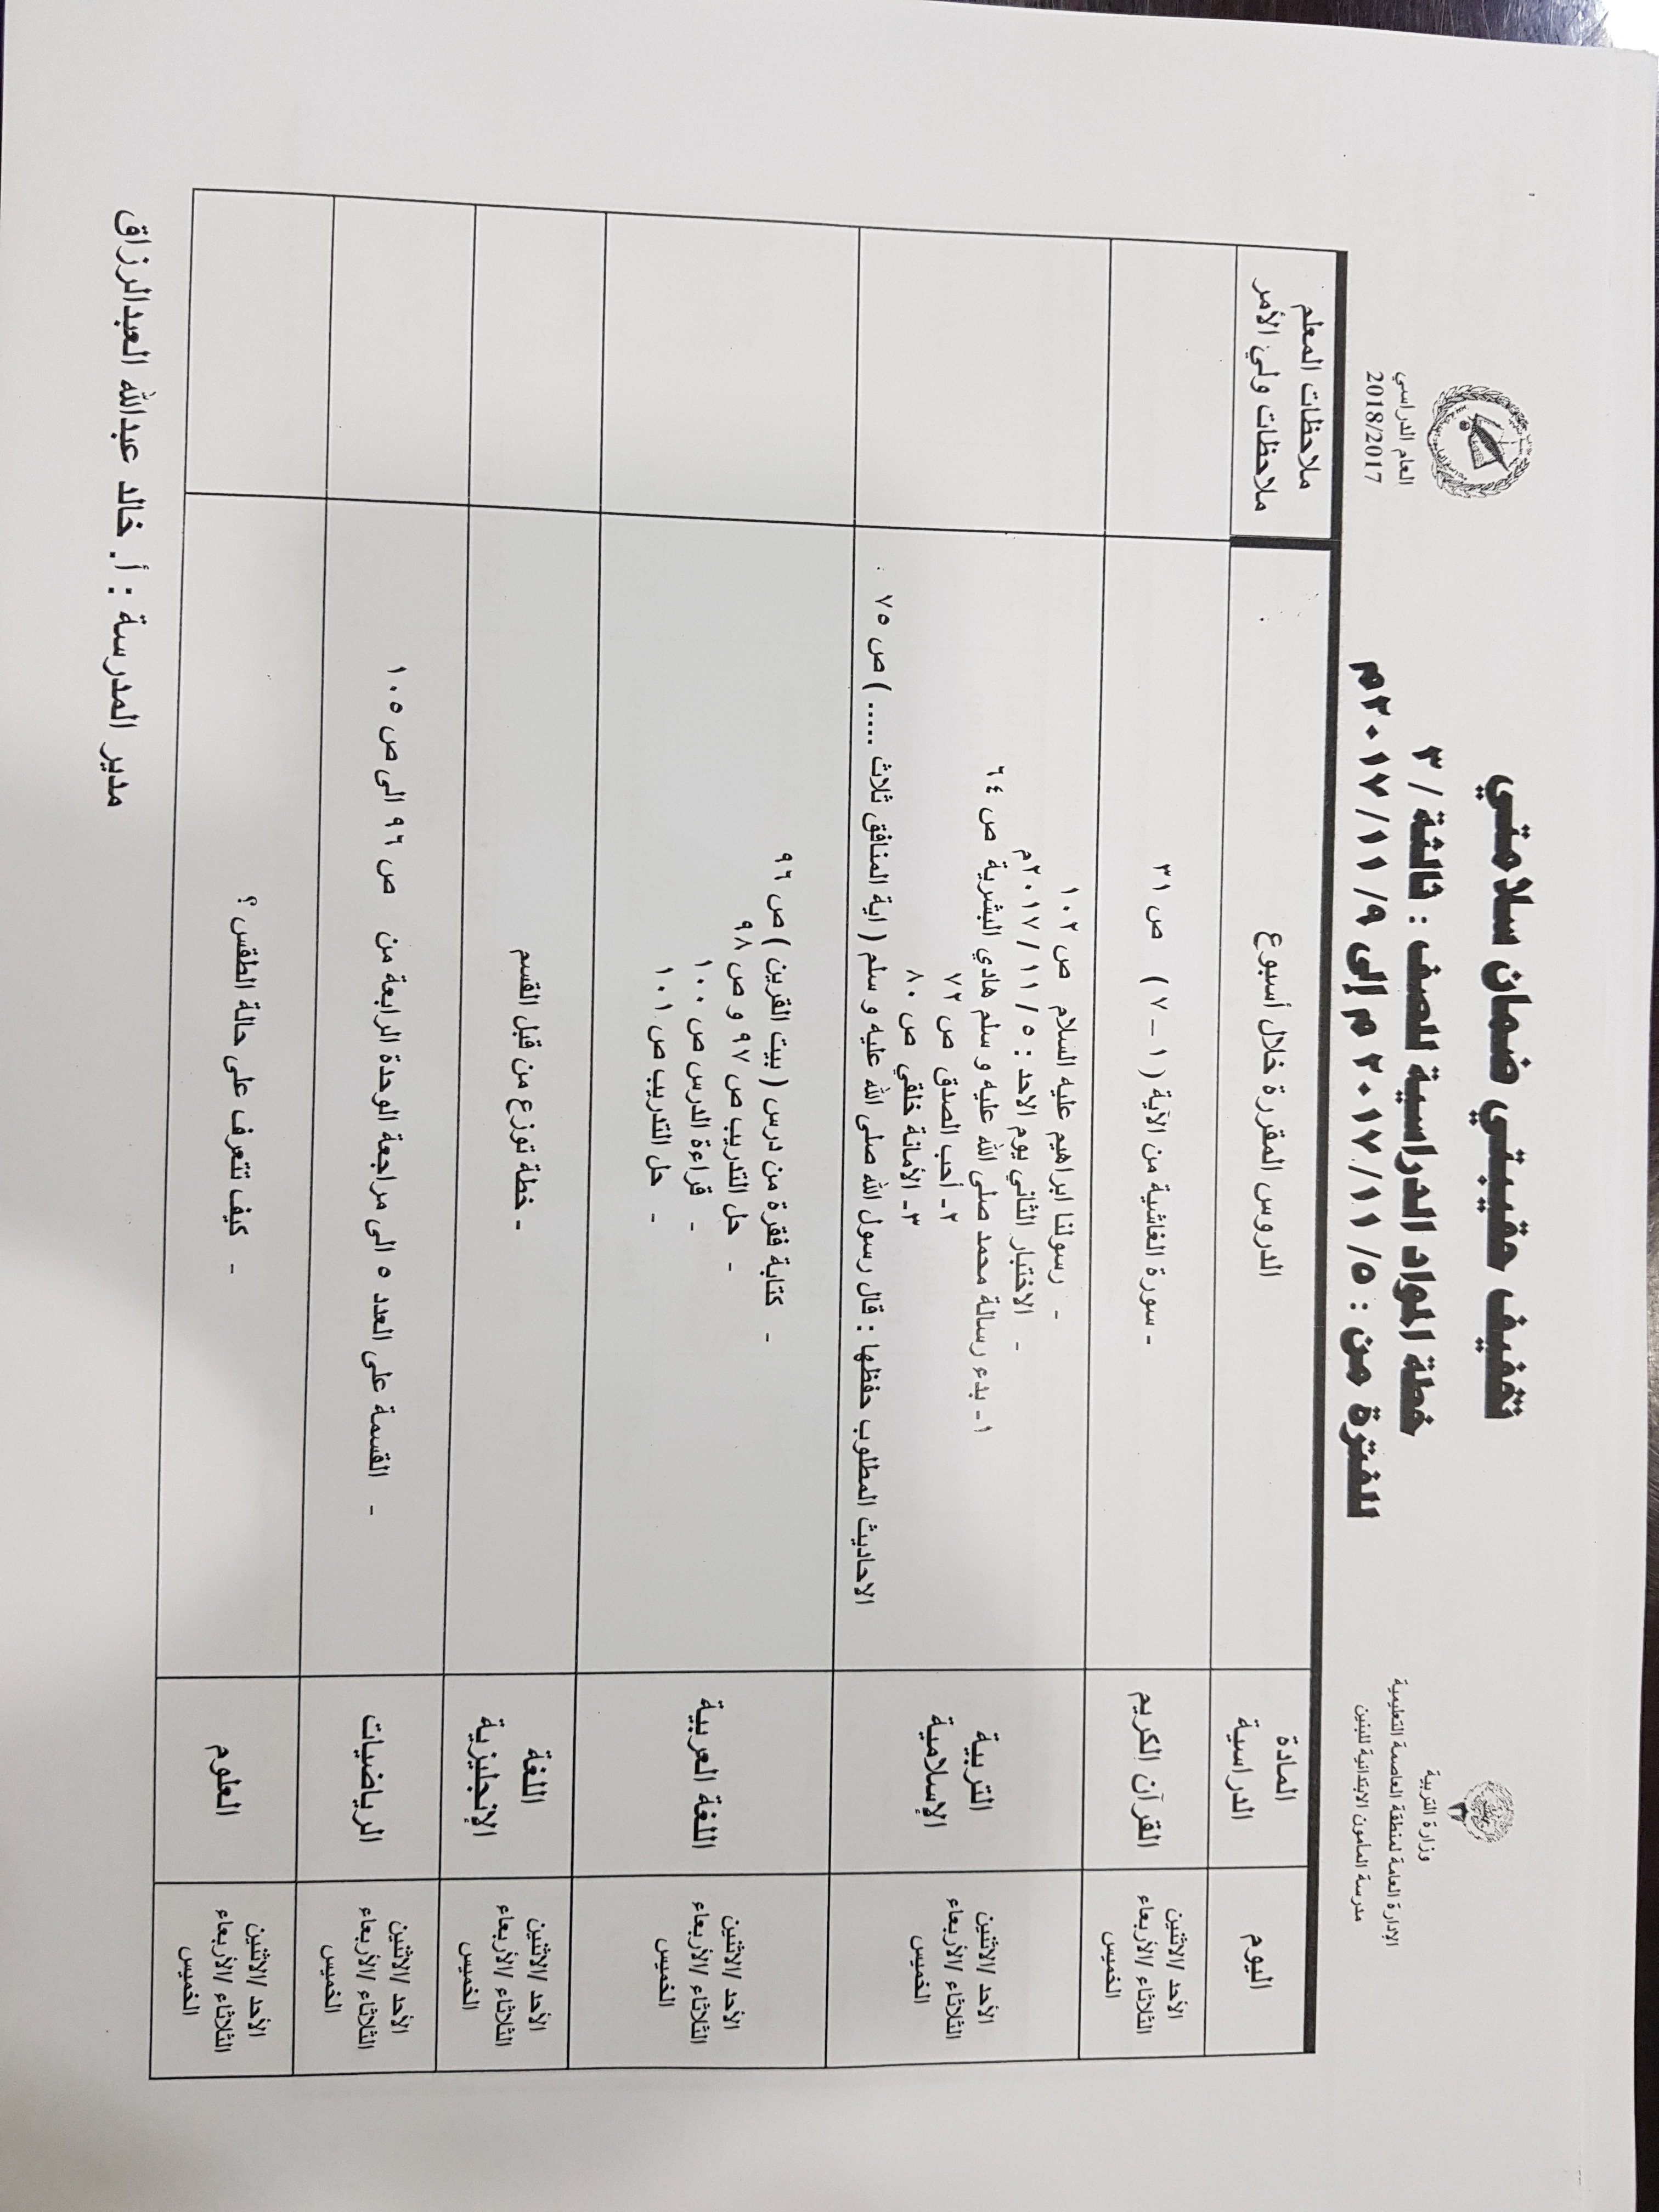 وزارة التربية
الإدارة العامة لمنطقة العاصمة التعليمية
مدرسة المامون الابتدائية للبنين
تخفيف حقيبتي ضمان سلامتي
خطة المواد الدراسية للصف : ثالثة / ٣
للفترة من : ٥ / ١١ / ٢٠١٧ م إلى ٩ / ١١ / ٢٠١٧م
العام الدراسي
2018/2017
اليوم
المادة
الدراسية
الدروس المقررة خلال أسبوع
ملاحظات المعلم
ملاحظات ولي الأمر
الأحد /الاثنين
الثلاثاء /الأربعاء
الخميس
القرآن الكريم
- سورة الغاشية من الآية ( ١ – ٧ ) ص ٣١
الأحد /الاثنين
الثلاثاء /الأربعاء
الخميس
التربية
الإسلامية
- رسولنا ابراهيم عليه السلام ص ١٠٢
- الاختبار الثاني يوم الاحد : ٥ / ١١ / ٢٠١٧م
١- بدء رسالة محمد صلى الله عليه و سلم هادي البشرية ص ٦٤
٢- أحب الصدق ص ٧٢
٣- الأمانة خلقي ص ٨٠
الاحاديث المطلوب حفظها : قال رسول الله صلى الله عليه و سلم ( اية المنافق ثلاث ..... ) ص ٧٥
الأحد /الاثنين
الثلاثاء /الأربعاء
الخميس
اللغة العربية
- كتابة فقرة من درس ( بيت القرين ) ص ٩٦
- حل التدريب ص ٩٧ و ص ٩٨
- قراءة الدرس ص ١٠٠
- حل التدريب ص ١٠١
الأحد /الاثنين
الثلاثاء /الأربعاء
الخميس
اللغة
الإنجليزية
- خطة توزع من قبل القسم
الأحد /الاثنين
الثلاثاء /الأربعاء
الخميس
الرياضيات
- القسمة على العدد ٥ الى مراجعة الوحدة الرابعة من ص ٩٦ الى ص ١٠٥
الأحد /الاثنين
الثلاثاء /الأربعاء
الخميس
العلوم
- كيف تتعرف على حالة الطقس ؟
مدير المدرسة : أ. خالد عبدالله العبدالرزاق